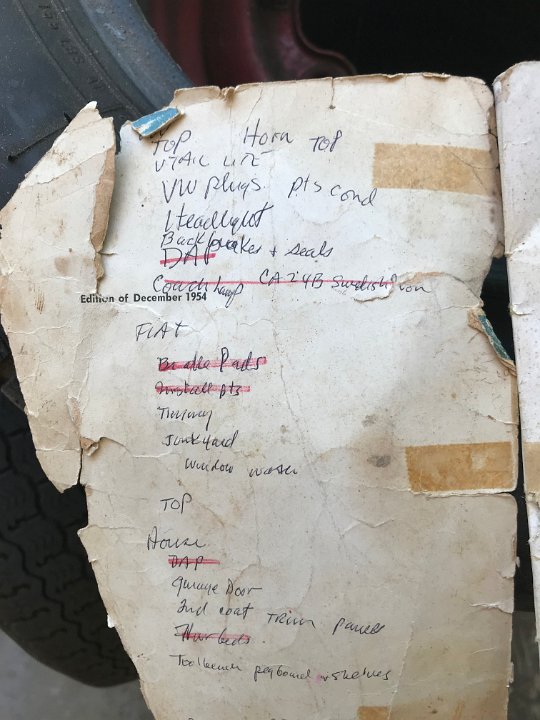 TOP Horn TOP
VTAIL LITE
VW plugs pts cond
1 Headlight
Back brakes + seals
DAP
Coach lamp CA24B Swedish iron
Edition of December 1954
FIAT
Brake Pads
Install pts
Timing
Junkyard
window washer
TOP
House
DAP
Garage Door
2nd coat Trim panels
Flowerbeds
Toolbench pegboard + shelves